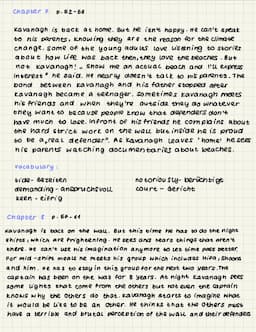 Chapter 7 p. 52-60
Kavanagh is back at home. But he isn't happy. He can't speak
to his parents, knowing they are the reason for the climate
change. Some of the young adults love listening to stories
about how life was back then, they love the beaches. But
not Kavanagh! "Show me an actual beach and I'll express
interest" he said. He nearly doesn't talk to his parents. The
bond between Kavanagh and his father stopped after
Kavanagh became a teenager. Sometimes Kavanagh meets
his friends and when they're outside they do whatever
they want to because people know that defenders don't
have much to lose. Infront of his friends he complains about
the hard strict work on the wall but inside he is proud
to be a "real defender". As Kavanagh leaves "home" he sees
his parents watching documentaries about beaches.
Vocabulary:
notoriously- berüchtigt
demanding - anspruchsvoll
court - Gericht
keen - eifrig
Chapter 8 p. 61-69
Kavanagh is back on the wall. But this time he has to do the night
shifts, which are frightening. He sees and hears things that aren't
there. He can't use his imagination anymore to let time pass better.
For mid-shift meals he meets his group which includes Hifa, Shoona
and him. He has to stay in this group for the next two years. The
captain had been on the wall for 8 years. At night Kavanagh sees
some lights that come from the others but not even the captain
knows why the others do that. Kavanagh starts to imagine what
it would be like to be an other. He thinks that the others must
have a terrible and brutal perception of the wall and their defenders